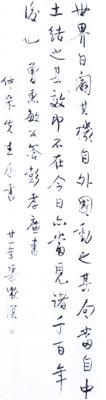 世界日闢其機自外國動之其局當自中
土結之其效即不在今日亦當見諸千百年
後也 曾惠敏公答彭孝廉書
仲 先生 書
廿一年吳敬恆